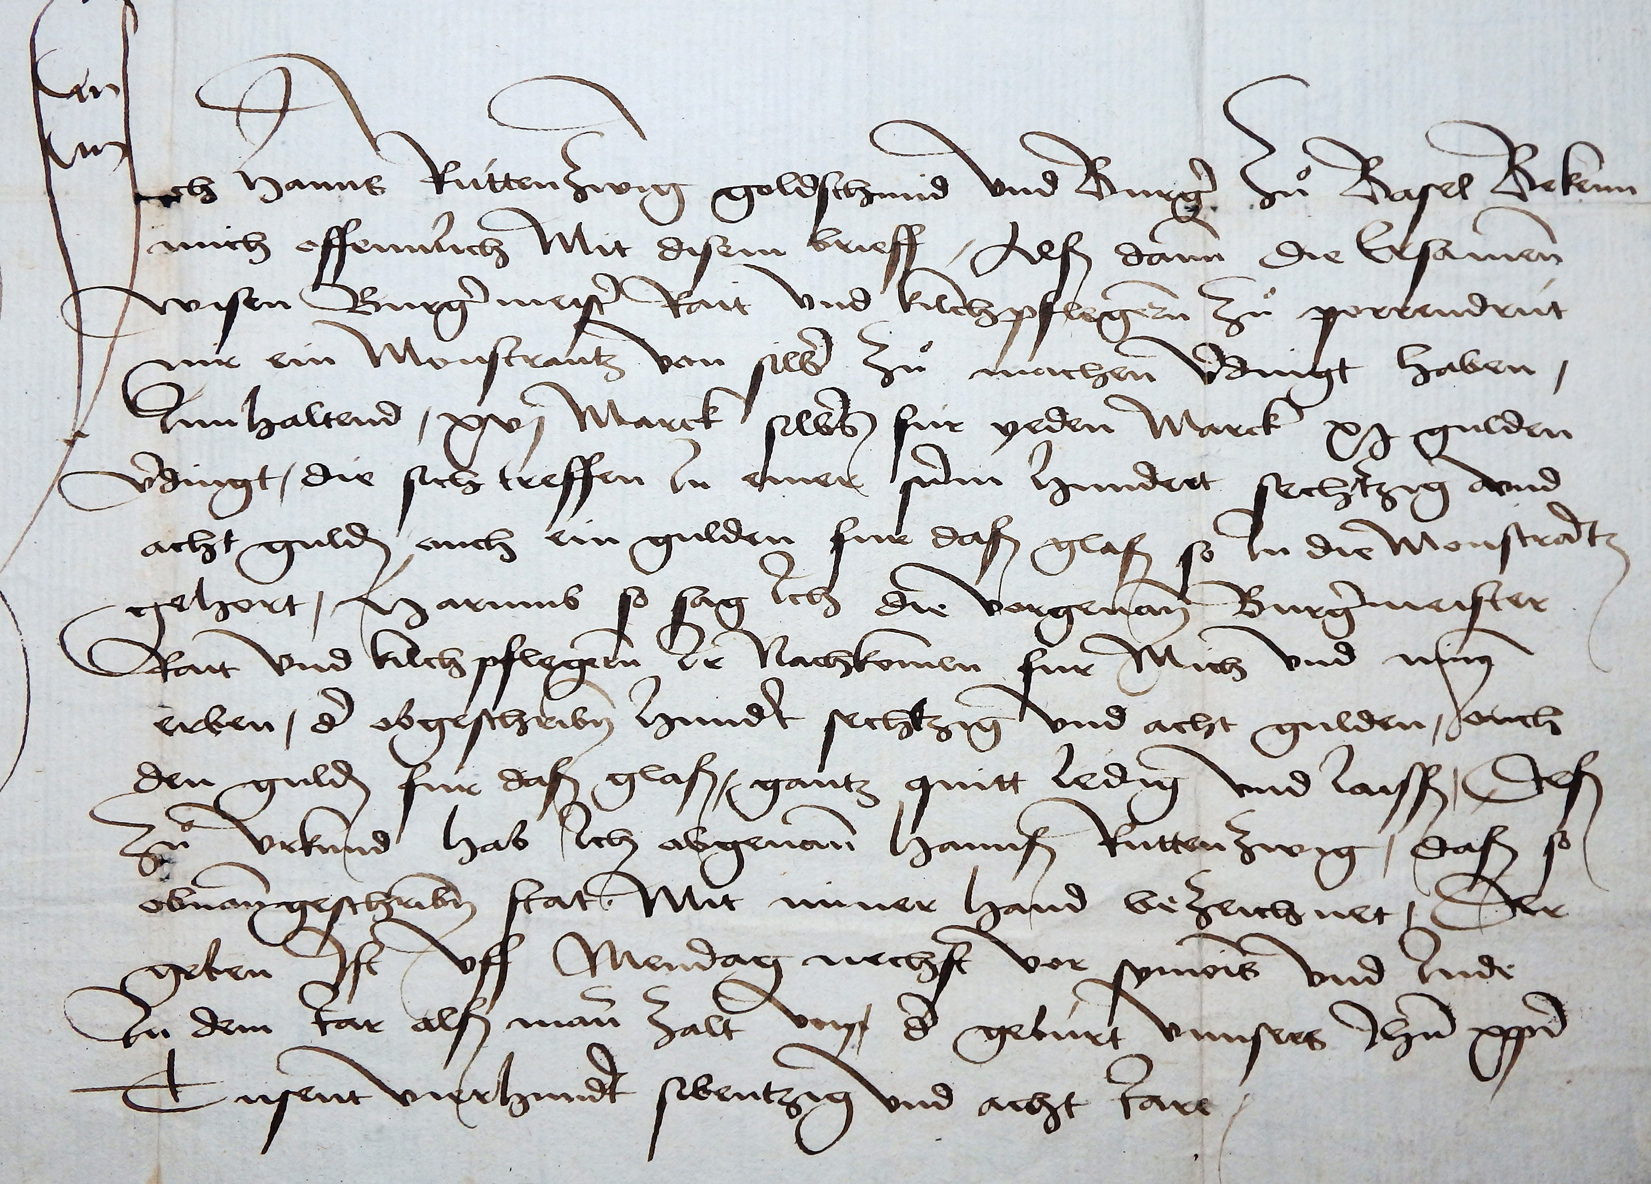 Ich Hanns Rúttenzwig goldschmid vnd Burger zů Basel Bekenn
mich offennlich Mit disem brieff / Alß dann die Ersamen
wisen Burgermeister Rait vnd kilchpflegern zů porrendrút
mir ein Monstrantz von silber zů machen verdingt haben /
Innhaltend / xvj Marck silbers fúr yeden Marck xj gulden
verdingt / die sich treffen In einer sum hundert sechtzig vnd
acht guldin / ouch ein gulden fur daß glaß so In die Monstrantz
gehort / Harumb so sag Ich die vorgenanten Burgermeister
Rait vnd kilchpflegern Ir Nachkomen fur Mich vnd min
erben / der obgeschriben hundert sechtzig vnd acht gulden / ouch
den guldin fúr daß glaß / gantz quitt ledig vnd loiß / Deß
zů vrkund hab Ich obgenant Hannß Ruttenzwig / daß so
obnangeschriben stat Mit miner hand bezeichnet / Der
geben Ist vff Mendag nechst vor symonis vnd Jude
In dem Jar alß man zalt von der geburt vnnsers Jhesu xpi
Tusent vierhundert sibentzig vnd acht Jare